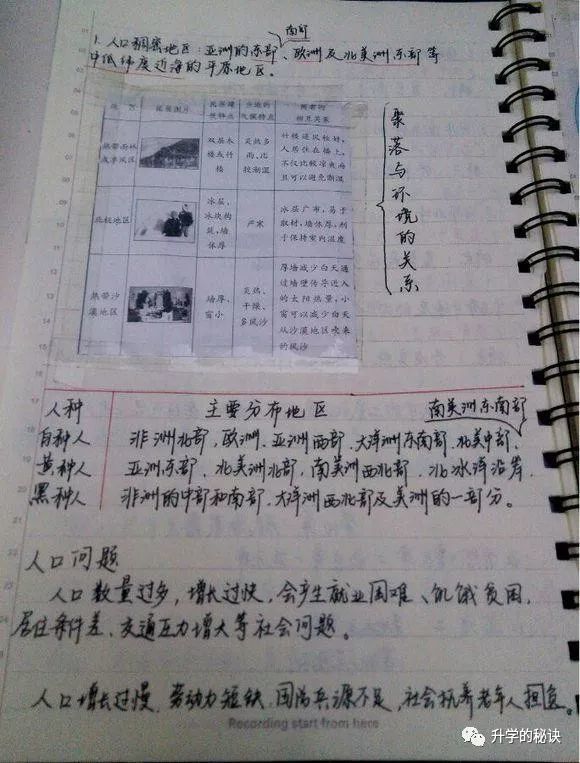 南部
1. 人口稠密地区：亚洲的东部、欧洲及北美洲东部等
中低纬度近海的平原地区。
地区 民居图片 民居建筑特点 当地的气候特点 两者的相互关系
热带雨林或季风区 双层木楼或竹楼 炎热多雨，比较潮湿 竹楼通风较好，人居住在楼上，不仅比较凉爽而且可以避免潮湿
北极地区 冰屋，冰块构筑，墙体厚 严寒 冰层广布，易于取材，墙体厚，利于保持室内温度
热带沙漠地区 墙厚、窗小 炎热、干燥、多风沙 厚墙减少白天通过墙壁传导进入的太阳热量，小窗可以减少白天从沙漠地区吹来的风沙
聚落与环境的关系
人种 主要分布地区 南美洲东南部
白种人 非洲北部、欧洲、亚洲西部、大洋洲东南部、北美中部、
黄种人 亚洲东部、北美洲北部、南美洲西北部、北冰洋沿岸、
黑种人 非洲的中部和南部、大洋洲西北部及美洲的一部分。
人口问题
人口数量过多，增长过快，会产生就业困难、饥饿贫困，
居住条件差、交通压力增大等社会问题。
人口增长过慢，劳动力短缺，国防兵源不足，社会抚养老年人担负。
Recording start from here
升学的秘诀